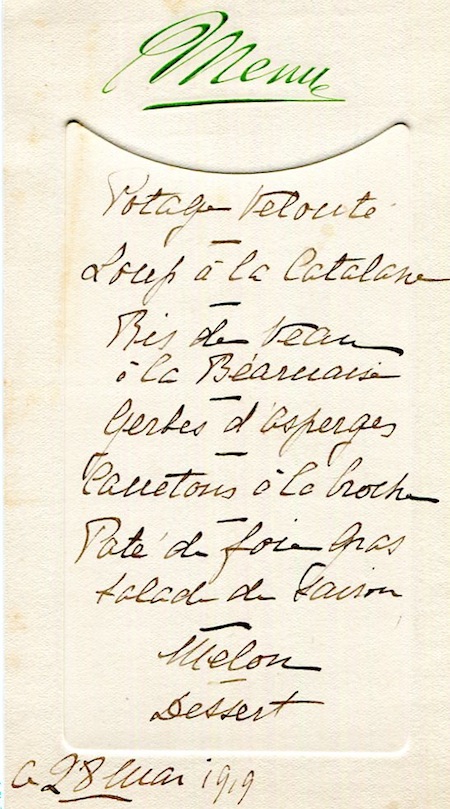 Menu
Potage Velouté
Loup à la Catalane
Ris de Veau
à la Béarnaise
Gerbes d'asperges
Canetons à la broche
Paté de foie gras
Salade de Saison
Melon
Dessert
28 Mai 1919